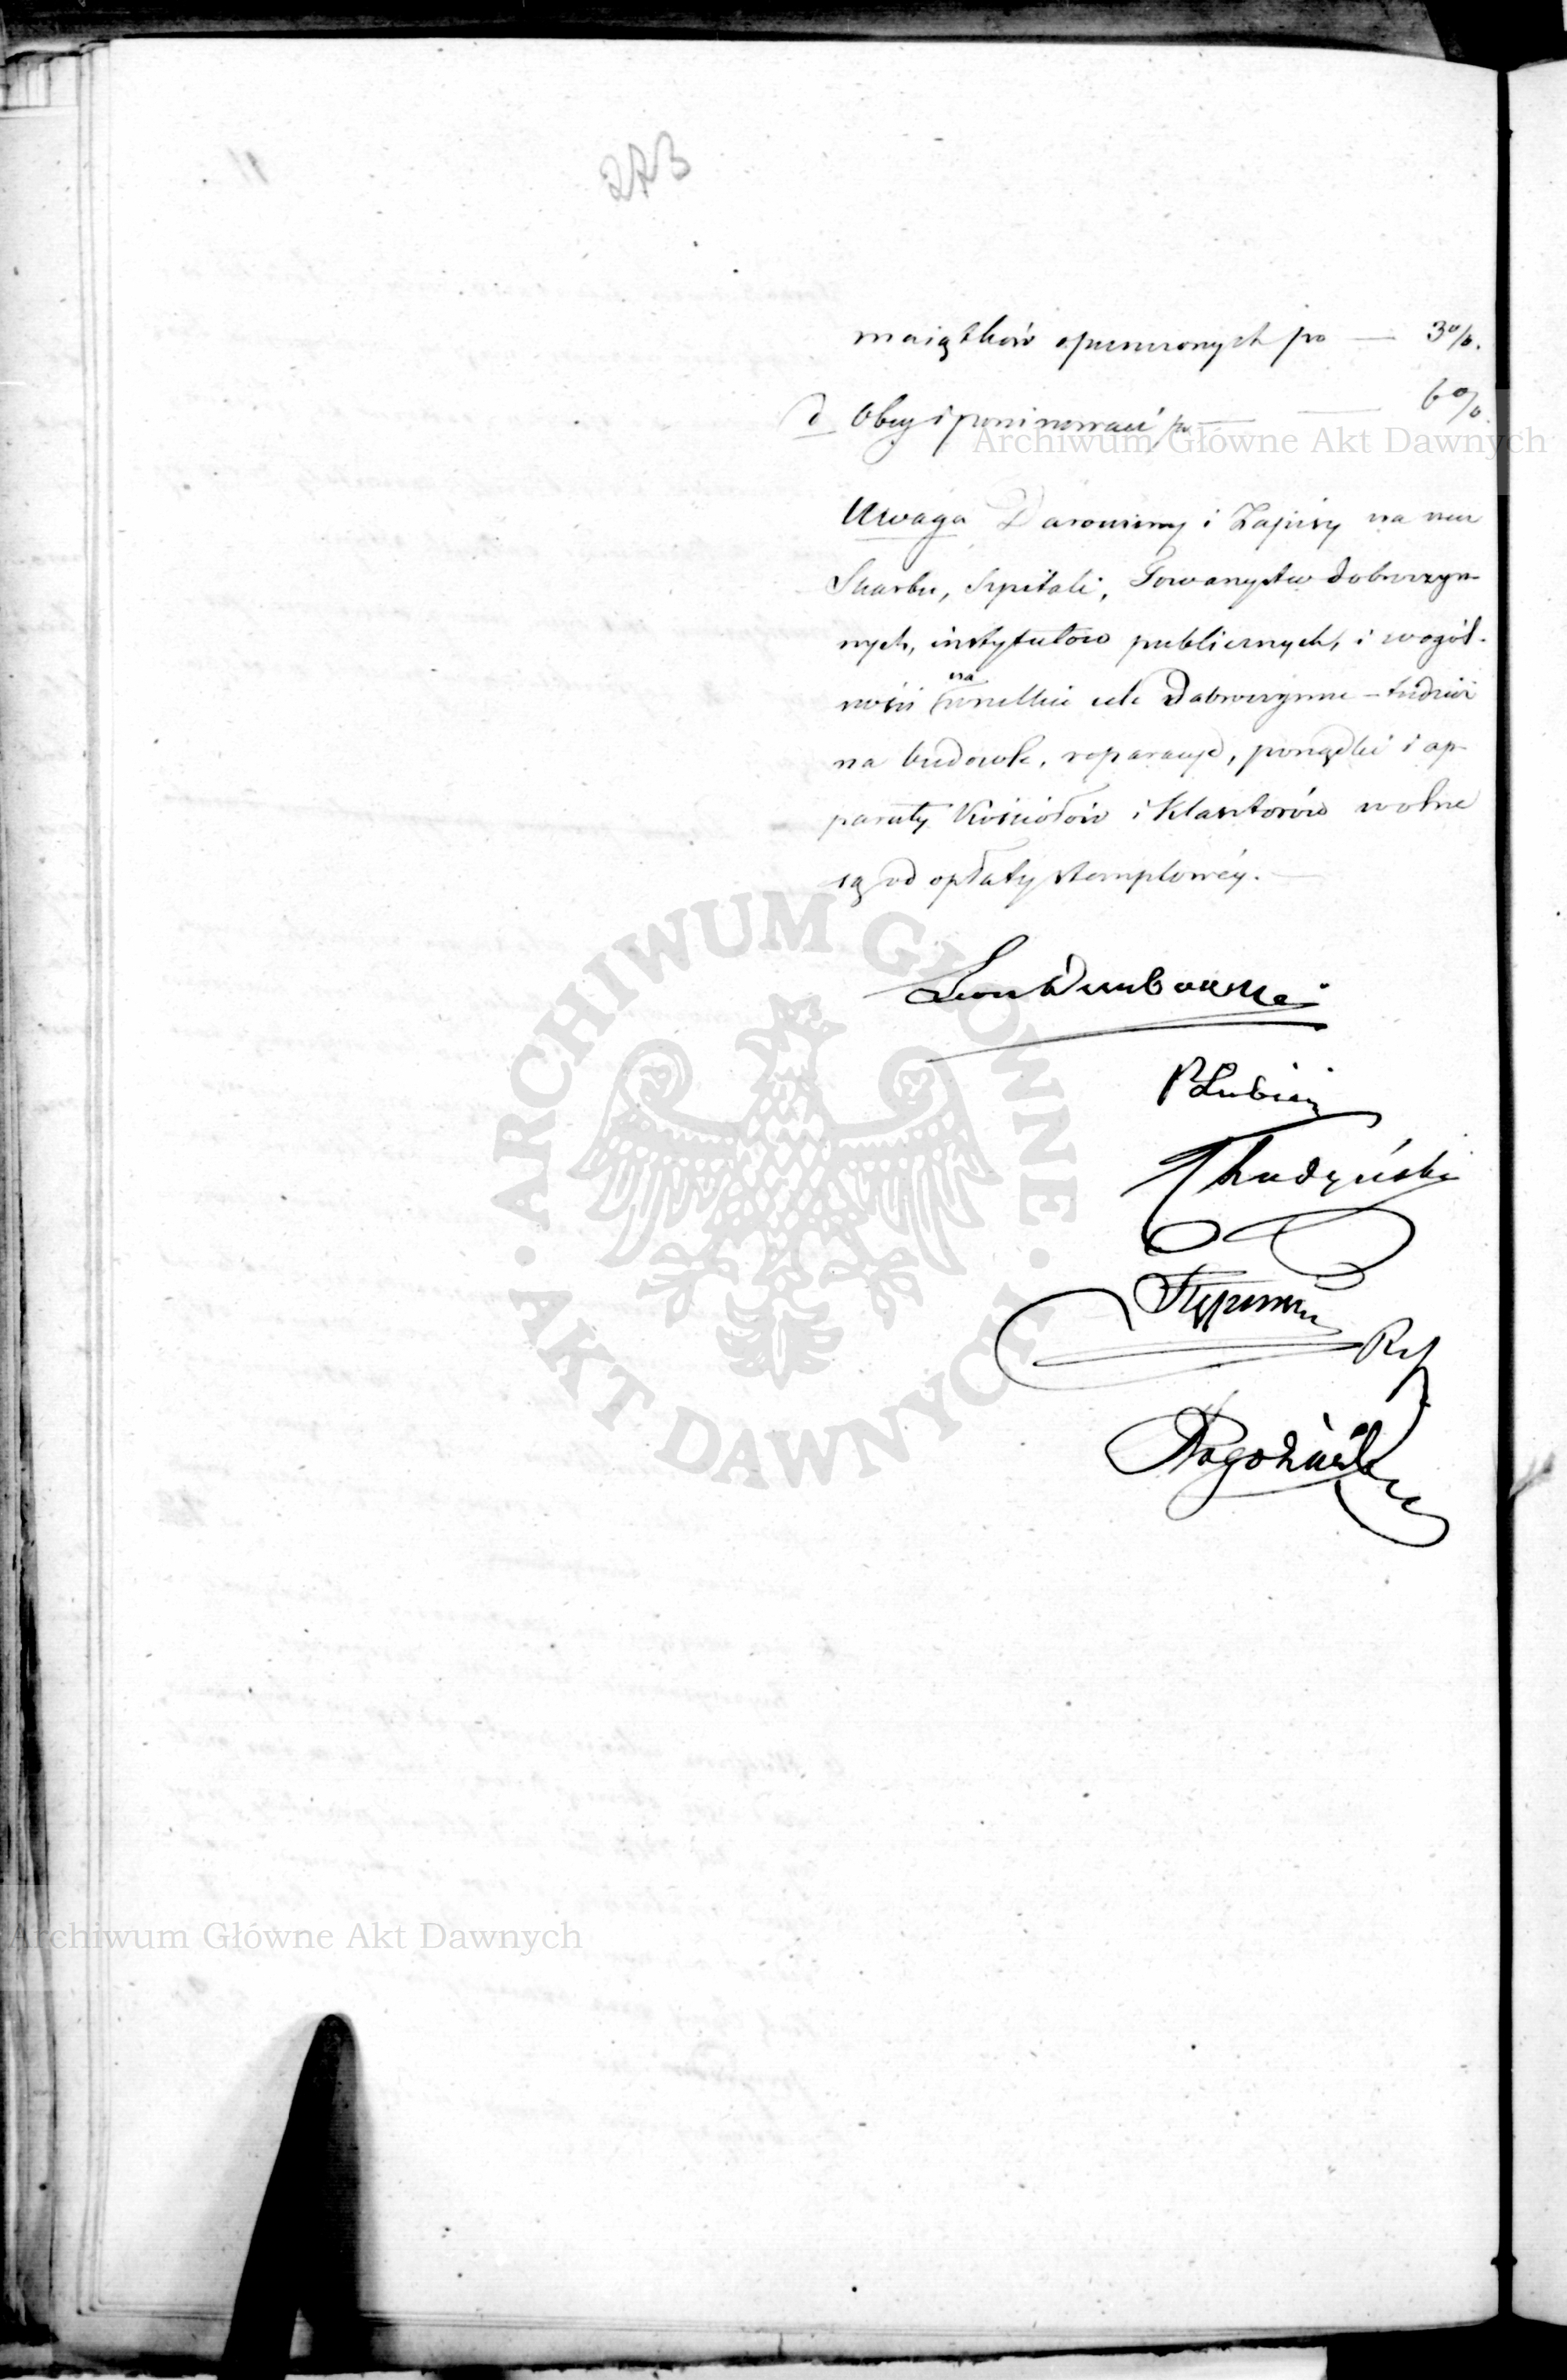 273
maiątków opuszczonych po — 3%.
d Obcy i powinowaci po — 6%.
Archiwum Główne Akt Dawnych
Uwaga Darowizny i Zapisy na rzecz
Skarbu, Szpitali, Towarzystw dobroczyn-
nych, instytutów publicznych, i wogól-
ności na wszelkie cele Dobroczynne – tudzież
na budowle, reparacye, porządki i ap-
paraty Kościołów i Klasztorów wolne
są od opłaty stemplowéy. —
Leon Dembowski
P Lubień
Chudzyński
Ref
Rogoziński
ARCHIWUM GŁÓWNE
AKT DAWNYCH
Archiwum Główne Akt Dawnych